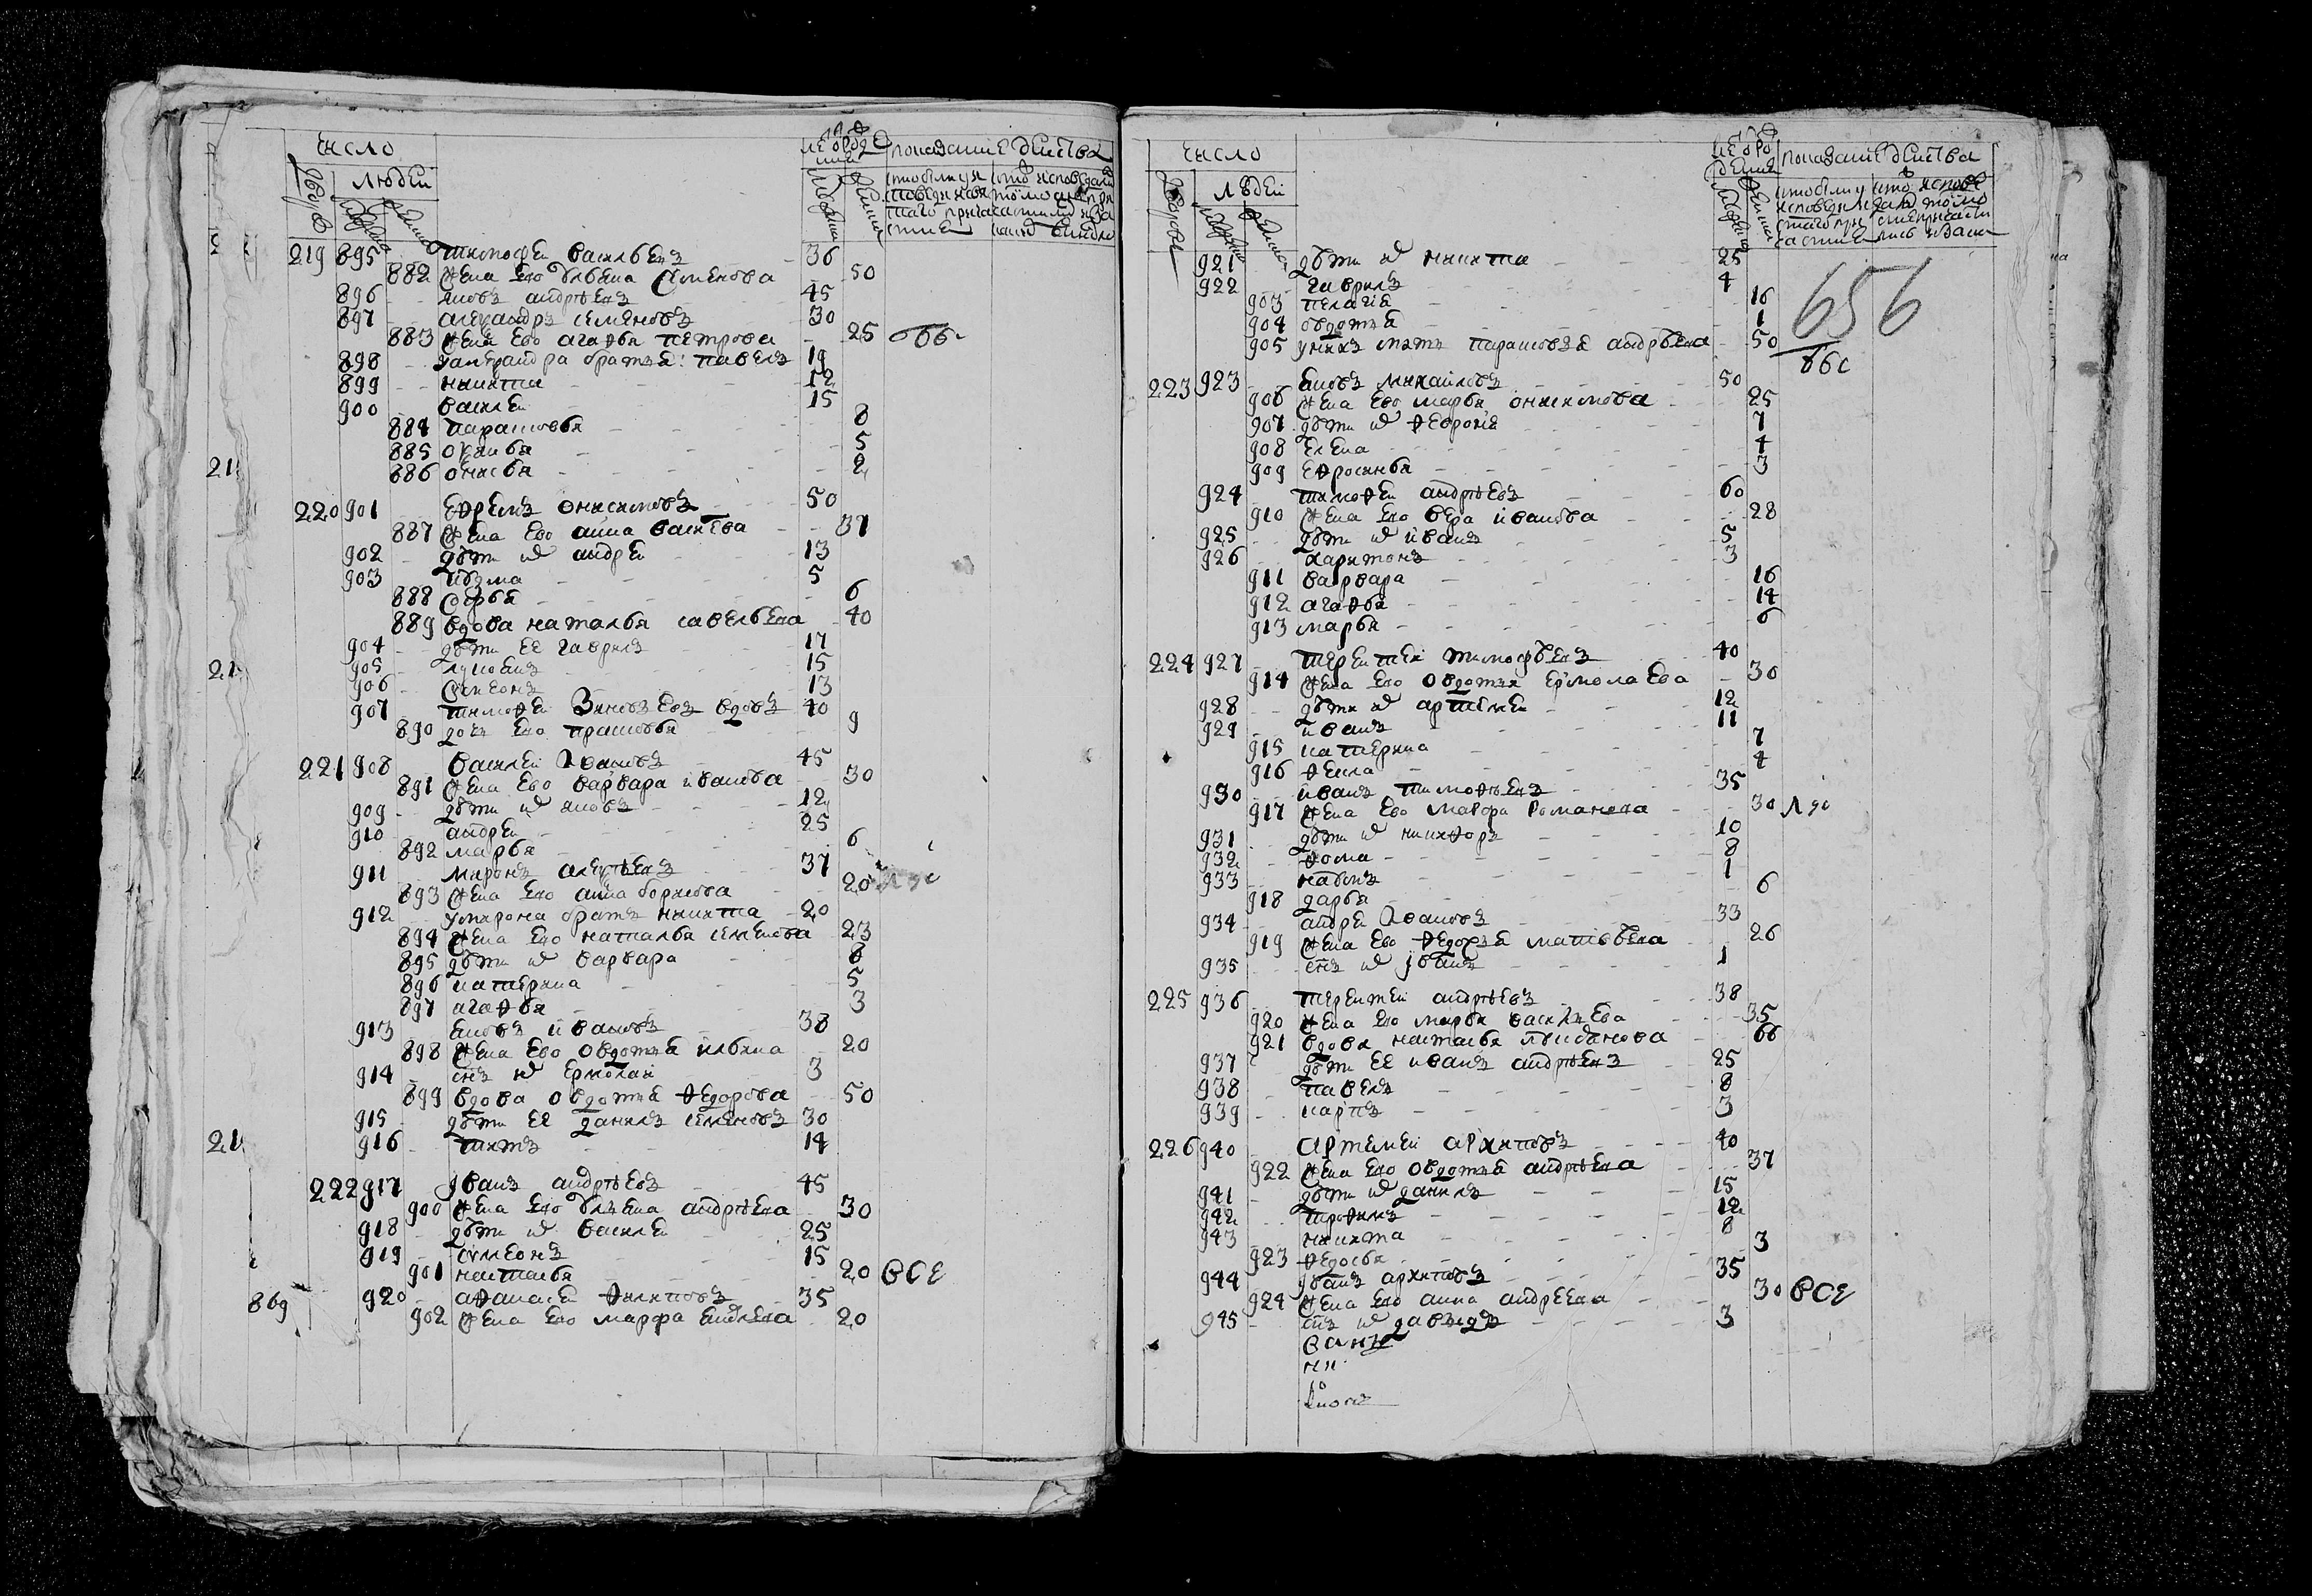 число
людей
показание действа
219 895 тимофей васильевъ 36
882 жена ево ульяна семенова 50
896 яковъ андрѣевъ 45
897 александръ семеновъ 30
883 жена ево агафья петрова 25
898 братья: павелъ 19
899 никита 12
900 василей 15
884 парасковья 8
885 5
886 2
220 901 ефремъ онисимовъ 50
887 жена ево анна 37
902 дѣти их андрей 13
903 кузма 5
888 софья 6
889 вдова наталья савельева 40
904 дѣти ее гаврилъ 17
905 лукоянъ 15
906 симеонъ 13
907 тимофей зиновьевъ вдовъ 40
890 дочь ево прасковья 9
221 908 василей ивановъ 45
891 жена ево варвара иванова 30
909 дѣти их яковъ 12
910 андрей 25
892 марья 6
911 миронъ алексѣевъ 37
893 жена ево анна борисова 20
912 у мирона братъ никита 20
894 жена ево наталья семенова 23
895 дѣти их варвара 8
896 катерина 5
897 агафья 3
913 яковъ ивановъ 38
898 жена ево овдотья ильина 20
914 снъ их ермолай 3
899 вдова овдотья федорова 50
915 дѣти ее данилъ семеновъ 30
916 титъ 14
222 917 иванъ андрѣевъ 45
900 жена ево ульяна андрѣева 30
918 дѣти их василей 25
919 симеонъ 15
901 настасья 20 все
869 920 афанасей филиповъ 35
902 жена ево марфа 20
число
людей
показание действа
921 дѣти их никита 25
922 гаврилъ 4
903 пелагея 16
656
904 овдотья 1
905 у них мать парасковья андрѣева 50
223 923 яковъ михаиловъ 50
906 жена ево марья онисимова 25
907 дѣти их феврония 7
908 елена 4
909 ефросинья 3
924 тимофей андрѣевъ 60
910 жена ево вера иванова 28
925 дѣти их иванъ 5
926 харитонъ 3
911 варвара 16
912 агафья 14
913 марья 6
224 927 терентей тимофѣевъ 40
914 жена ево овдотья ермолаева 30
928 дѣти их артемей 12
929 иванъ 11
915 катерина 7
916 фекла 4
930 иванъ тимофѣевъ 35
917 жена ево мавра романова 30
931 дѣти их никифоръ 10
932 фома 8
933 наумъ 1
918 дарья 6
934 андрей ивановъ 33
919 жена ево федосья матвѣева 26
935 снъ их иванъ 1
225 936 терентей андрѣевъ 38
920 жена ево марья василева 35
921 вдова настасья 66
937 дѣти ее иванъ андрѣевъ 25
938 павелъ 8
939 карпъ 3
226 940 артемей архиповъ 40
922 жена ево овдотья андрѣева 37
941 дѣти их данилъ 15
942 трофимъ 12
943 никита 8
923 федосья 3
944 иванъ архиповъ 35
924 жена ево анна андреева 30 все
945 снъ их давыдъ 3